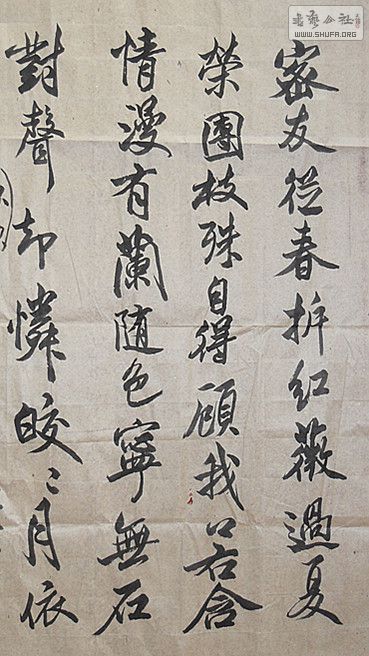 書藝公社
WWW.SHUFA.ORG
密友從春拆紅薇過夏
榮團枝殊自得顧我若含
情漫有蘭随色寧無石
對聲却憐皎〻月依